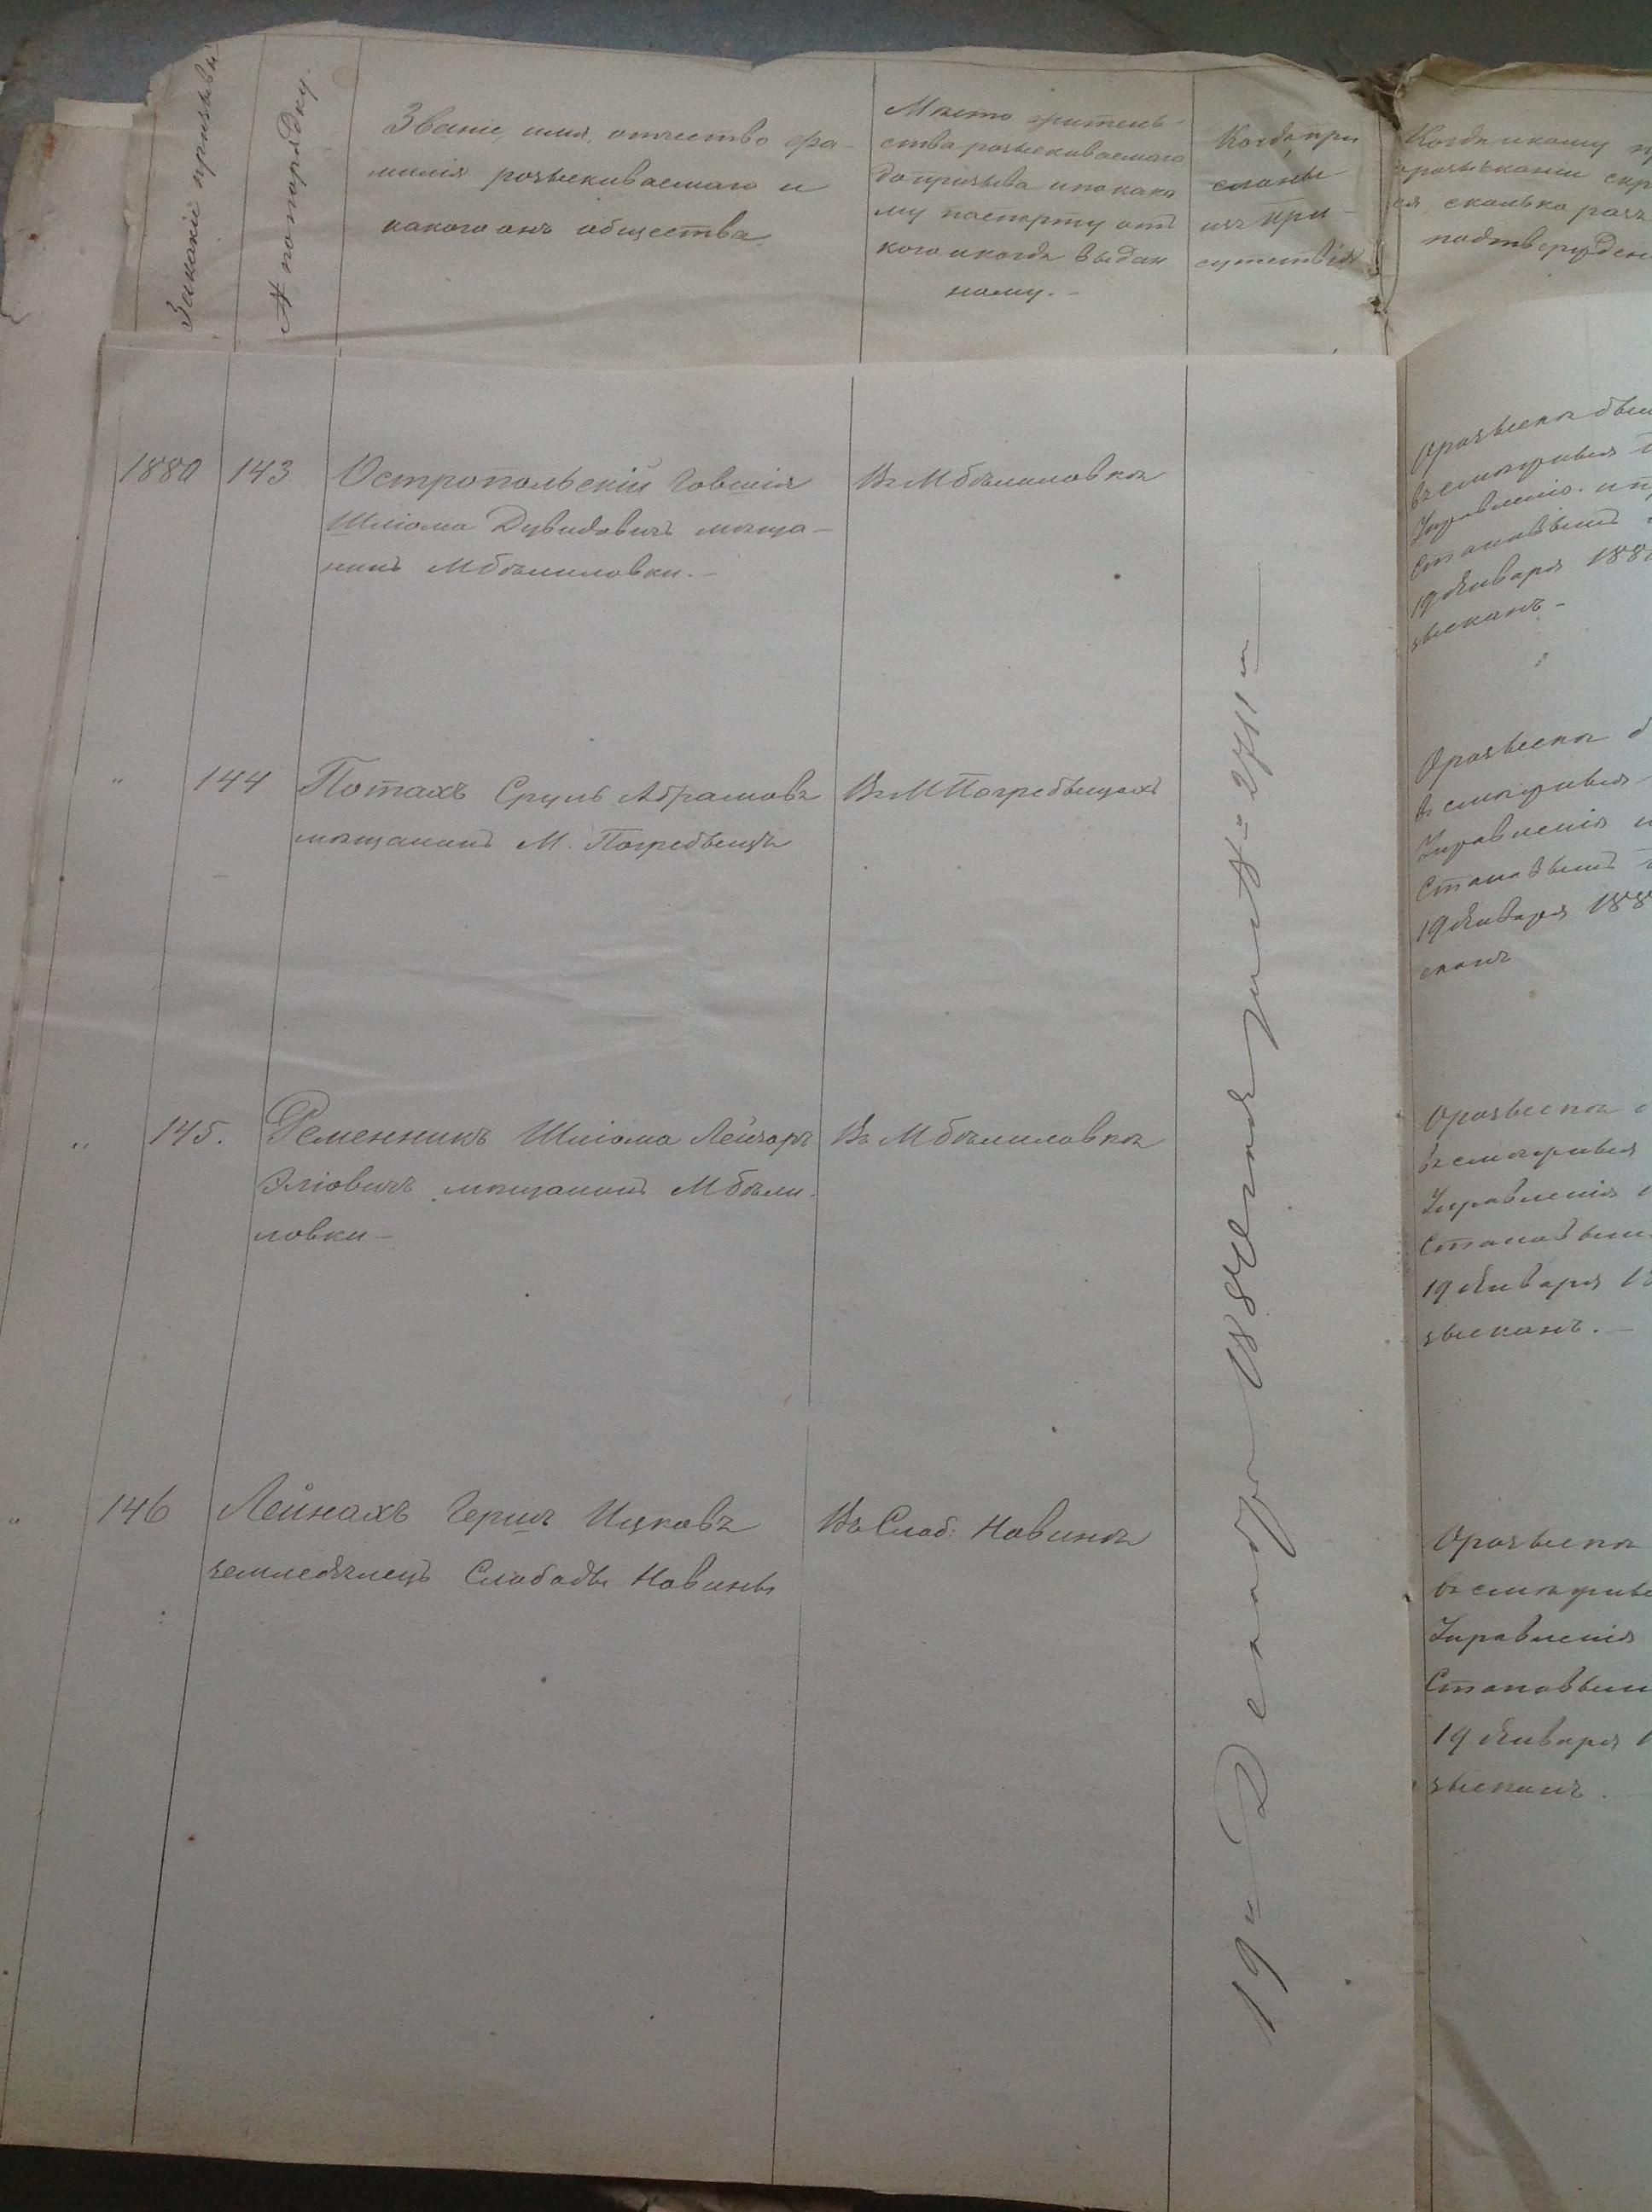 За какой призывъ
№ по порядку.
Званіе, имя, отчество фа-
милія розыскиваемаго и
какого онъ общества
Мѣсто житель-
ства розыскиваемаго
до призыва и по како
му паспорту отъ
кого и когда выдан
ному. -
Когда при
сланы
изъ при-
сутствія
Когда и кому
о розысканіи
сколько разъ
подтвержден
1880
143
Островпольскій Говшія
Шліома Дувидовичъ мѣща-
нинъ М Бѣлиловки. -
Въ М Бѣлиловкѣ
О розыскѣ
Управленію.
19 Января 188
зысканъ -
"
144
Потахъ Сруль Абрамовъ
мѣщанинъ М. Погребыщъ
Въ М Погребыщахъ
О розыскѣ
Управленія
Становымъ
19 Января 188
сканъ
"
145.
Ременникъ Шліома Лейзоръ
Эліовичъ мѣщанинъ М Бѣли-
ловки -
Въ М Бѣлиловкѣ
О розыскѣ
Управленія
Становым
19 Января 1
зысканъ. -
"
146
Лейнахъ Гершъ Ицковъ
земледѣлецъ Слободы Новины
Въ Слоб: Новинѣ
О розыскѣ
Управленія
Становым
19 Января 1
зысканъ.
19 Декабр 188 за № 2711